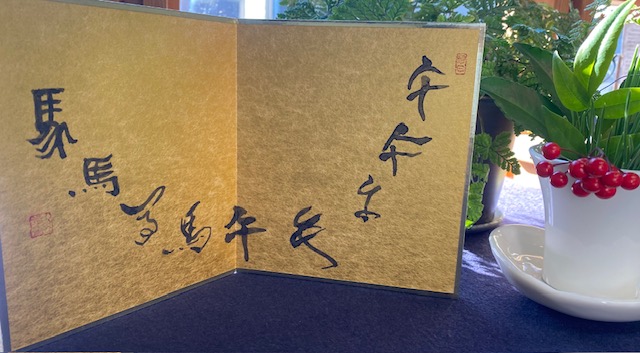 午午午午午馬馬馬馬